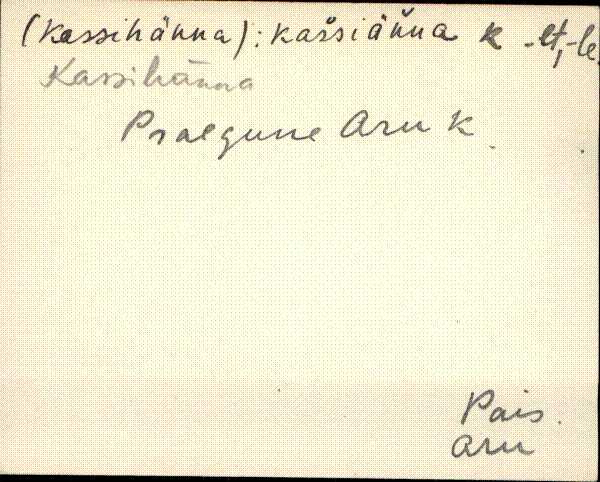 (Kassihänna): kaššiäňna K -lt, -le.
Kassihänna
Praegune Aru K.
Pais.
Aru